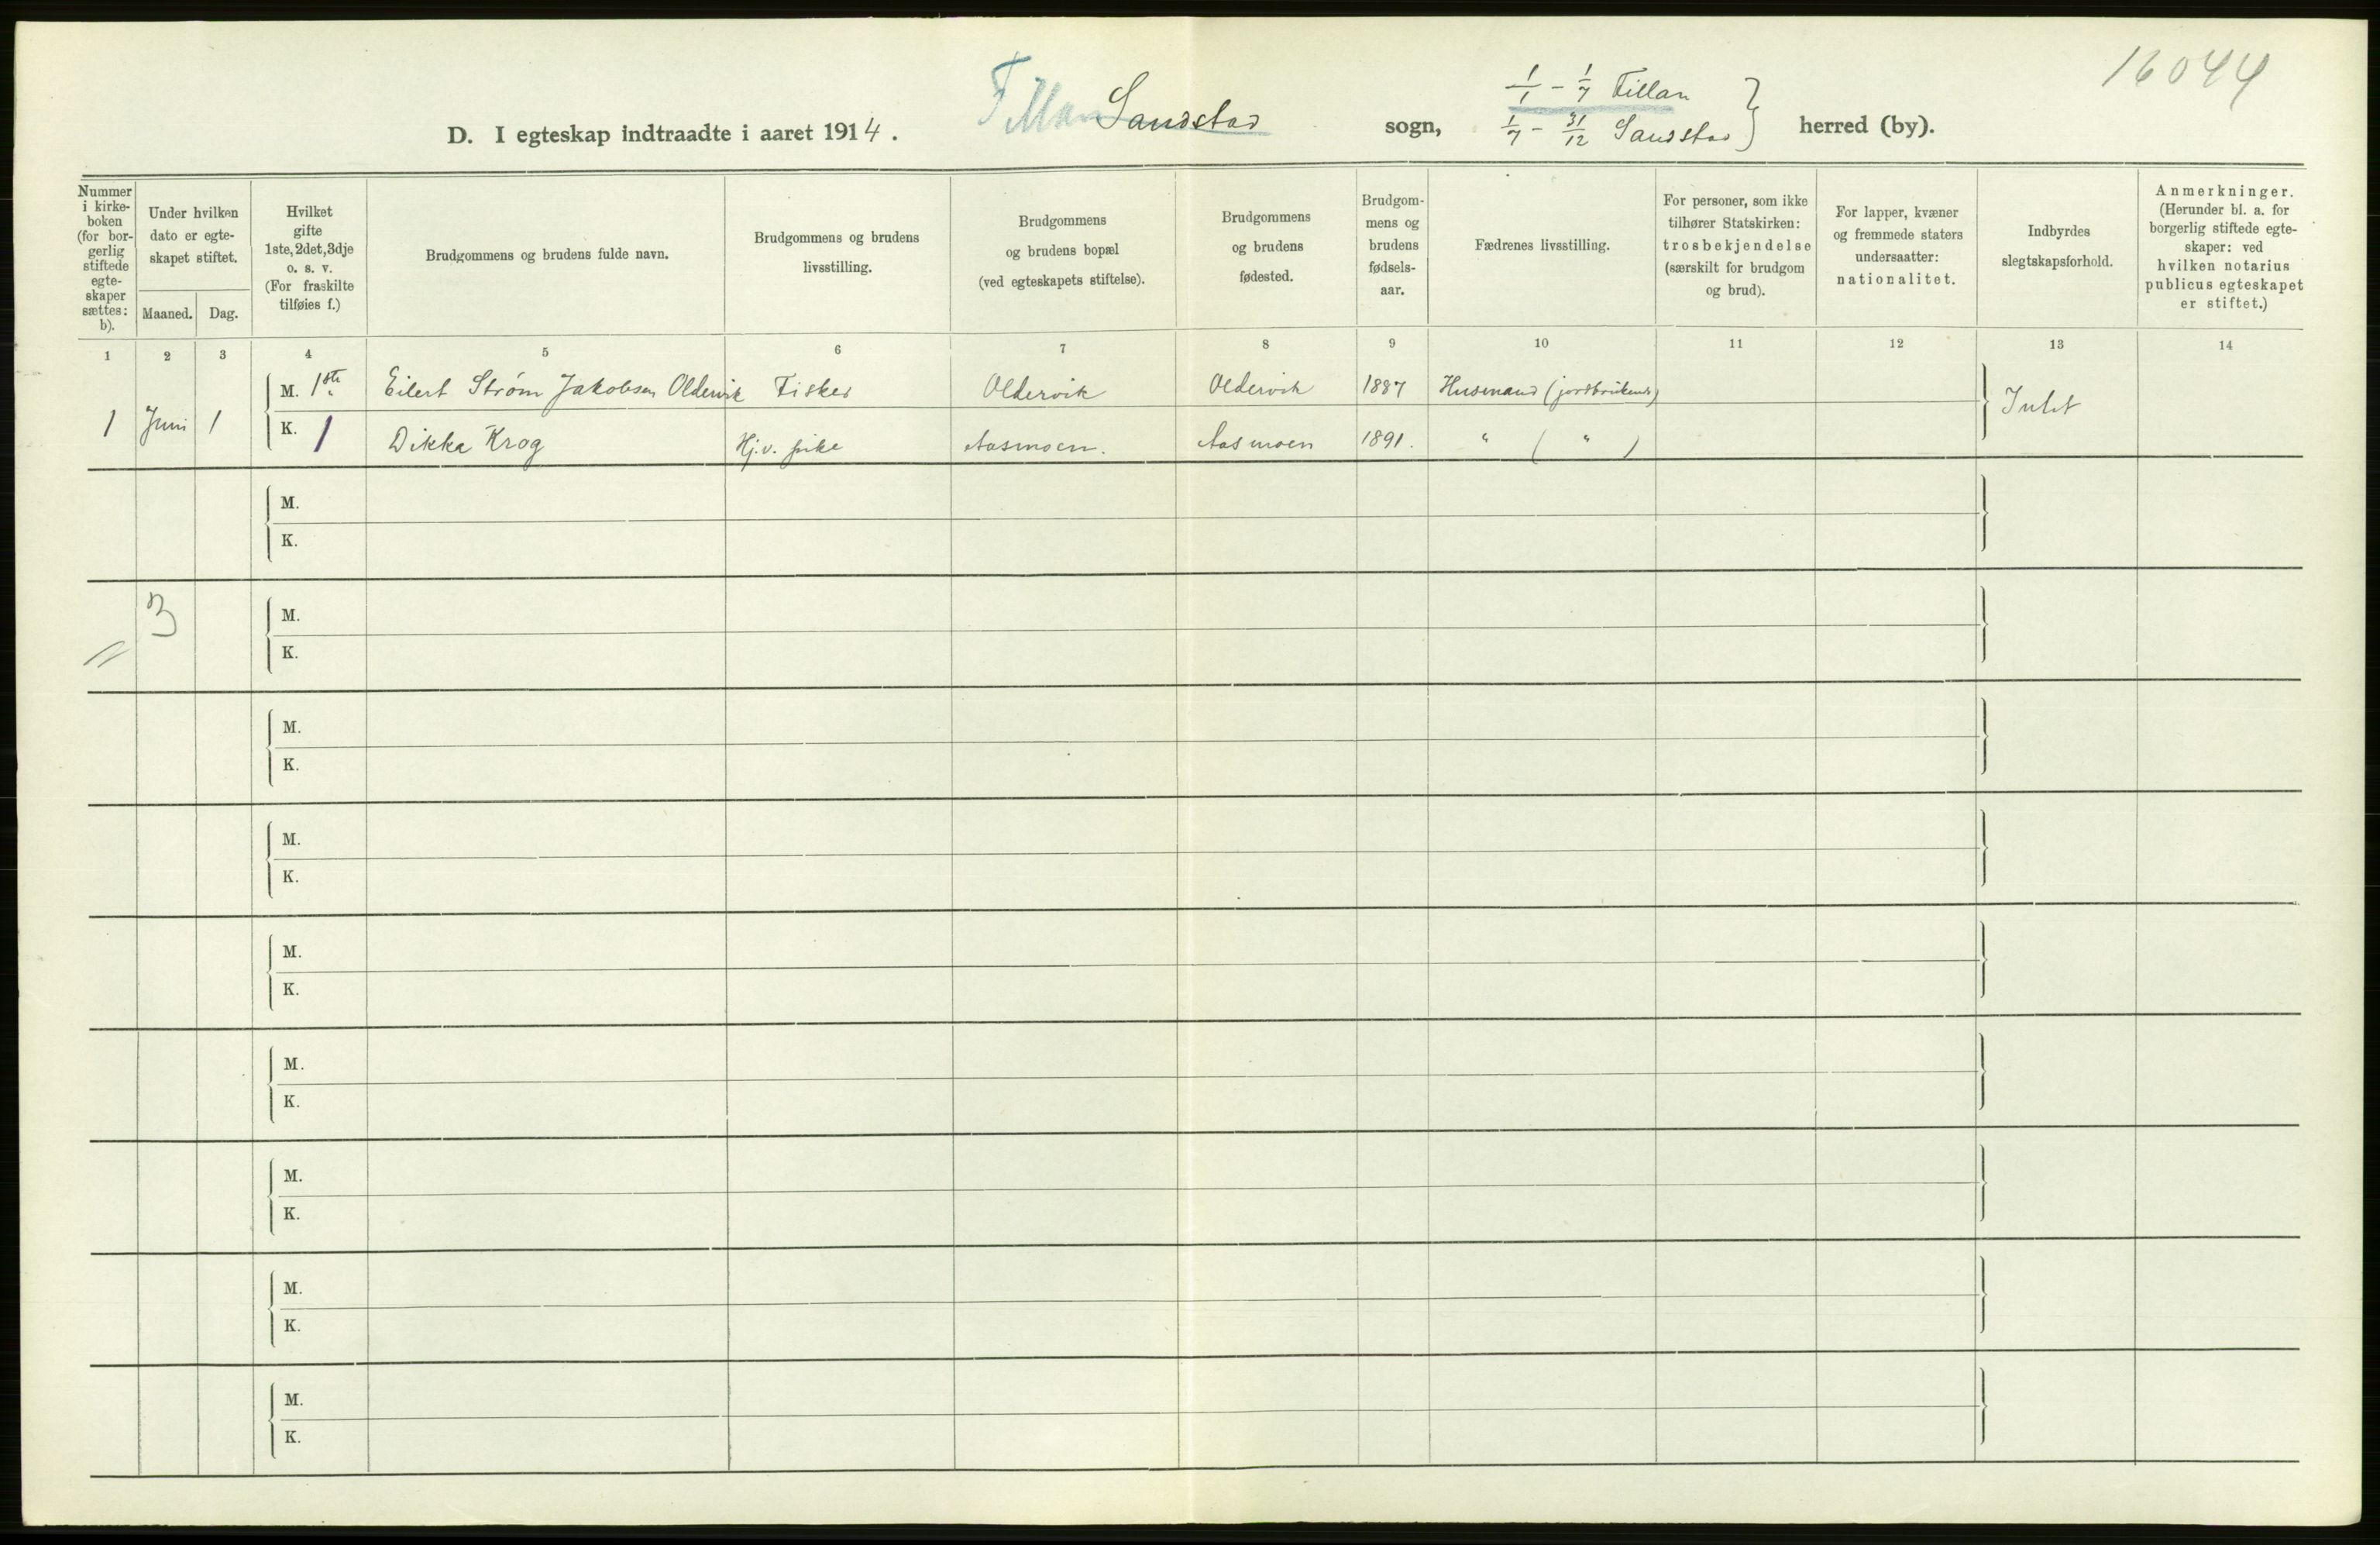 16044
Fillan Sandstad
1/1 - 1/7 Fillan
D. I egteskap indtraadte i aaret 1914. sogn, 1/7 - 31/12 Sandstad } herred (by).
Nummer i kirke- boken (for bor- gerlig stiftede egte- skaper sættes: b).
Under hvilken dato er egte- skapet stiftet.
Maaned. Dag.
Hvilket gifte 1ste, 2det, 3dje o. s. v. (For fraskilte tilføies f.)
Brudgommens og brudens fulde navn.
Brudgommens og brudens livsstilling.
Brudgommens og brudens bopæl (ved egteskapets stiftelse).
Brudgommens og brudens fødested.
Brudgom- mens og brudens fødsels- aar.
Fædrenes livsstilling.
For personer, som ikke tilhører Statskirken: trosbekjendelse (særskilt for brudgom og brud).
For lapper, kvæner og fremmede staters undersaatter: nationalitet.
Indbyrdes slegtskapsforhold.
Anmerkninger. (Herunder bl. a. for borgerlig stiftede egte- skaper: ved hvilken notarius publicus egteskapet er stiftet.)
1 2 3 4 5 6 7 8 9 10 11 12 13 14
M. 1ste Eilert Strøm Jakobsen Oldervik Fisker Oldervik Oldervik 1887 Husmand (jordbrukende)
1 Juni 1 Intet
K. 1 Dikka Krog Hj.v. pike Aasmoen. Aasmoen 1891. " ( " )
M.
K.
3
M.
K.
M.
K.
M.
K.
M.
K.
M.
K.
M.
K.
M.
K.
M.
K.